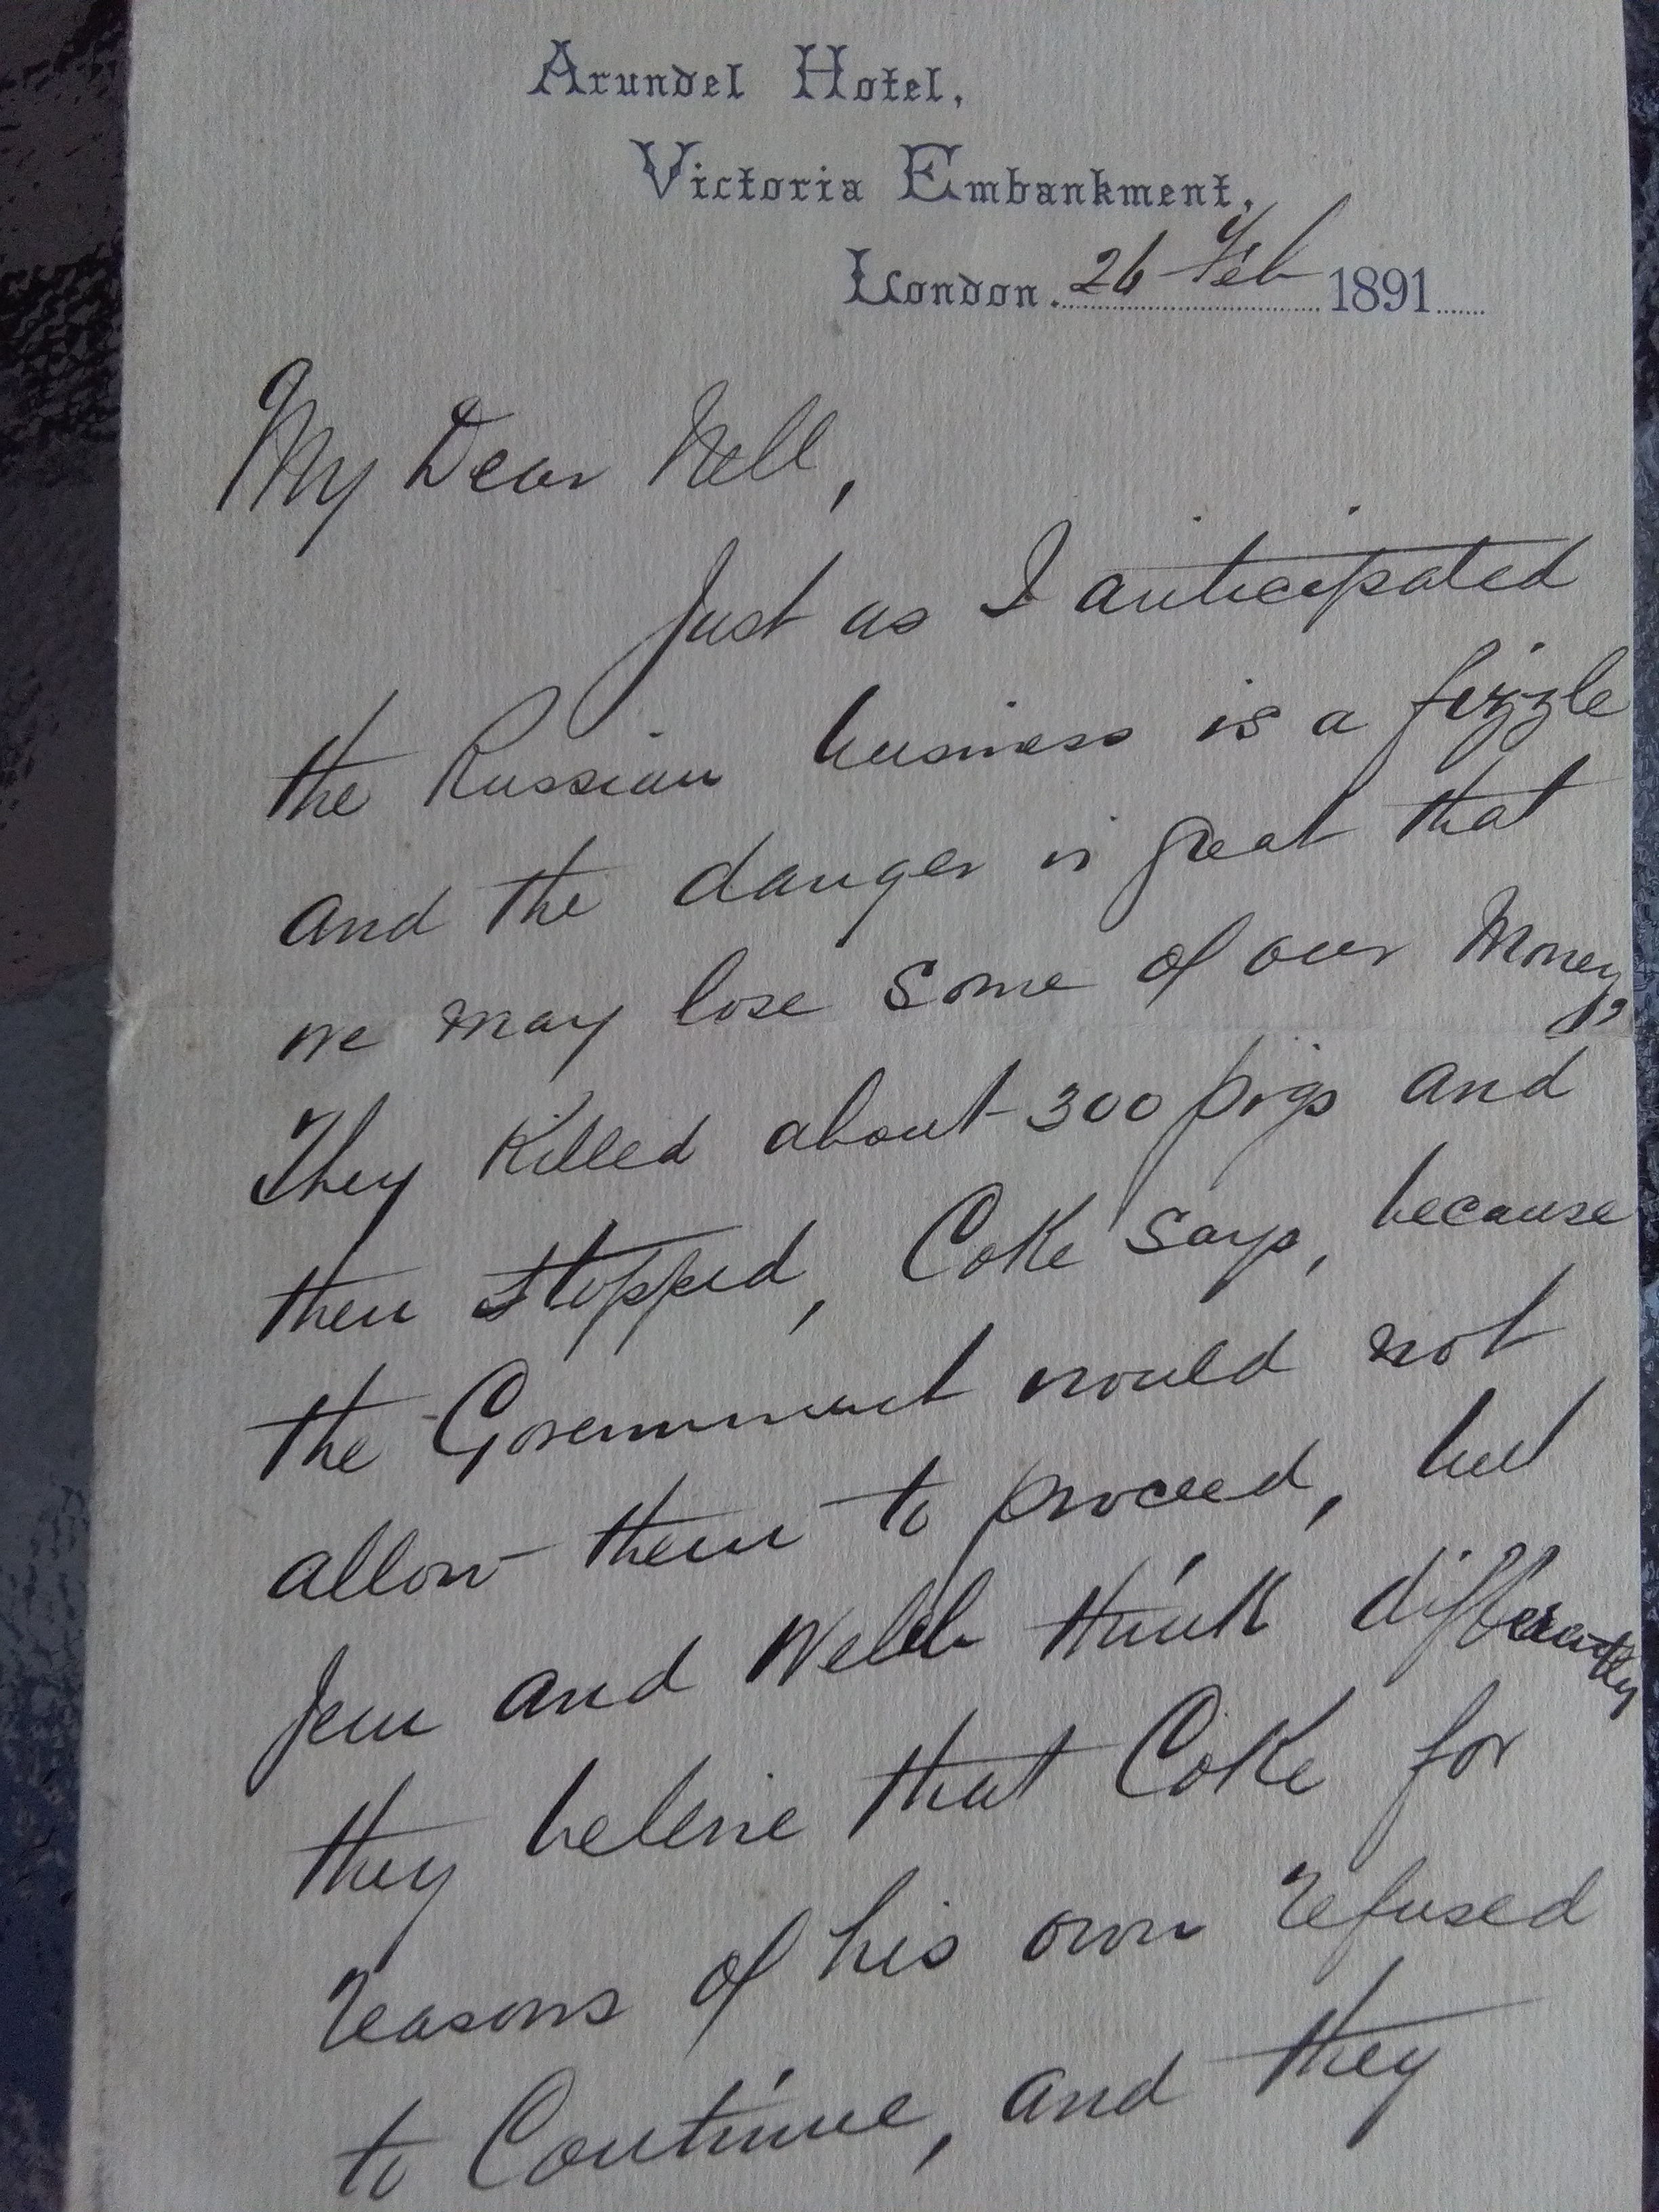 Arundel Hotel,
Victoria Embankment,
London. 26 Feb 1891
My Dear Nell,
Just as I anticipated
the Russian business is a fizzle
and the danger is great that
we may lose some of our Money
They Killed about 300 pigs and
then stopped, Coke says, because
the Government would not
allow them to proceed, but
Jem and Webb think differently
they believe that Coke for
reasons of his own refused
to Continue, and they